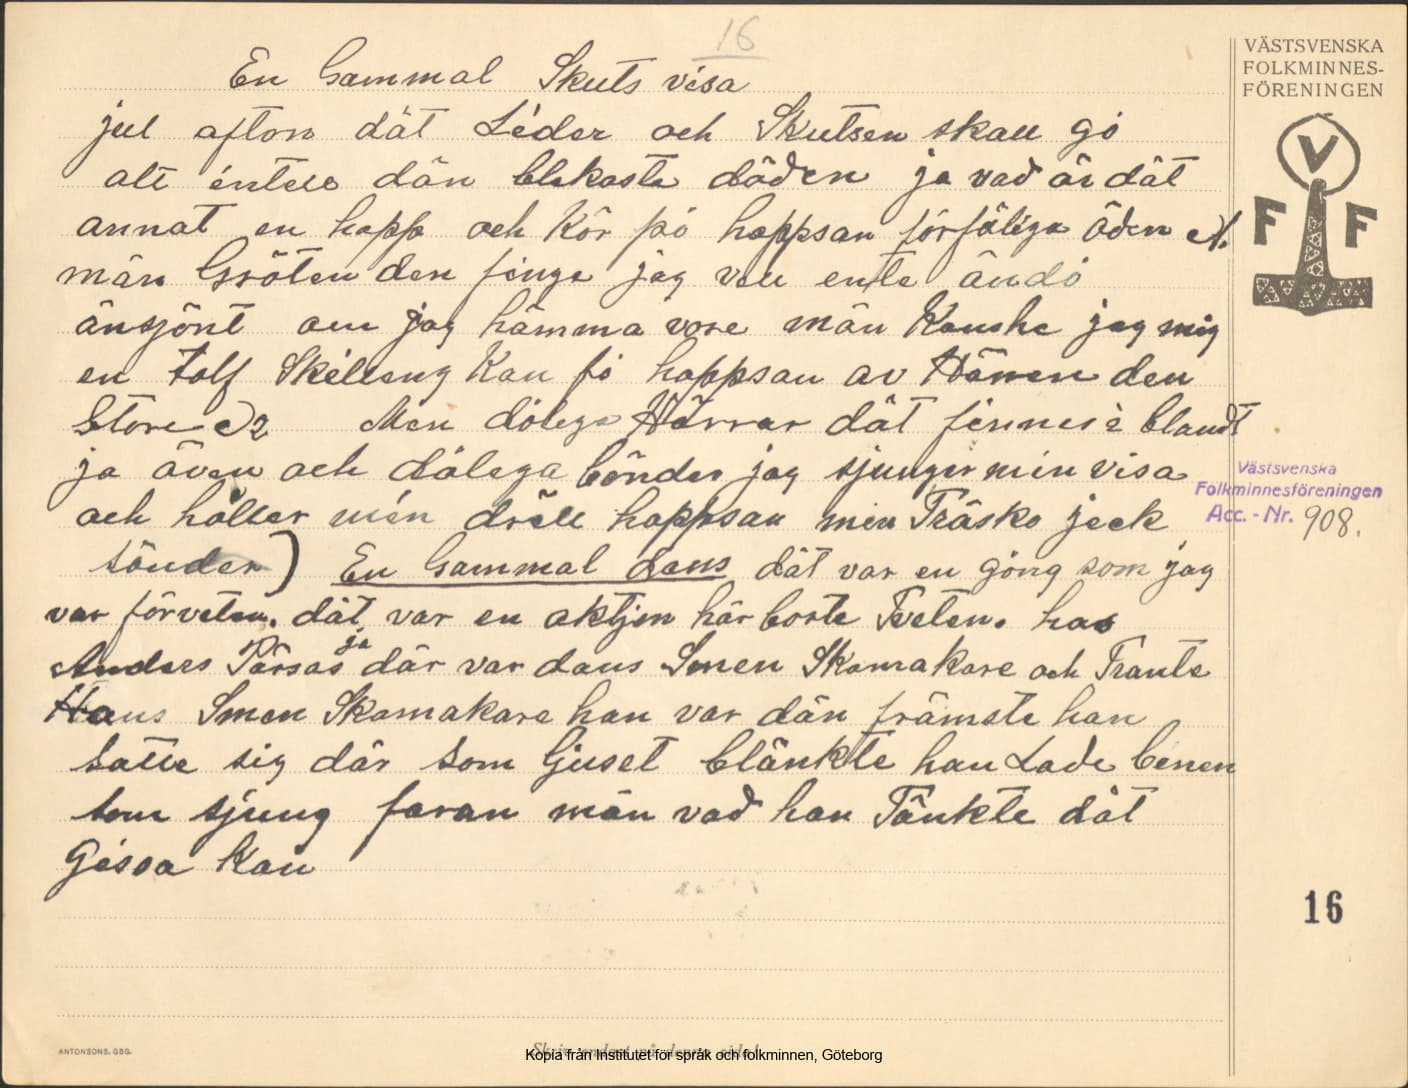 16
En Gammal Skuts visa
jul afton dät Lider och Skutsen skall gó
alt intell dän blekaste döden ja vad är dät
annat en hopp och Kör pó hoppsan förfäliga öden
män Gröten den finge jag vell ente ändó
änsjönt om jag hämma vore män Kanske jag mig
en tolf Skilleng Kan fó hoppsan av Hären den
Store 2 Men dólega Härrar dät finnes blandt
ja även och dólega bönder jag sjunger min visa
och håller min dräll hoppsan min Träsko jeck
sönder) En Gammal dans dät var en góng som jag
var förveten. dät var en aktjon här borte Tveten. hos
Anders Pärsas ja där var dans Smen Skomakare och Trante
Hans Smen Skomakare han var dän främste han
satte sig där som ljuset blänkte han Lade benen
som sjung faran män vad han Tänkte dät
Gissa Kan
VÄSTSVENSKA
FOLKMINNES-
FÖRENINGEN
V
F F
Västsvenska
Folkminnesföreningen
Acc. - Nr. 908.
16
ANTONSONS, GBG.
Kopia från Institutet för språk och folkminnen, Göteborg